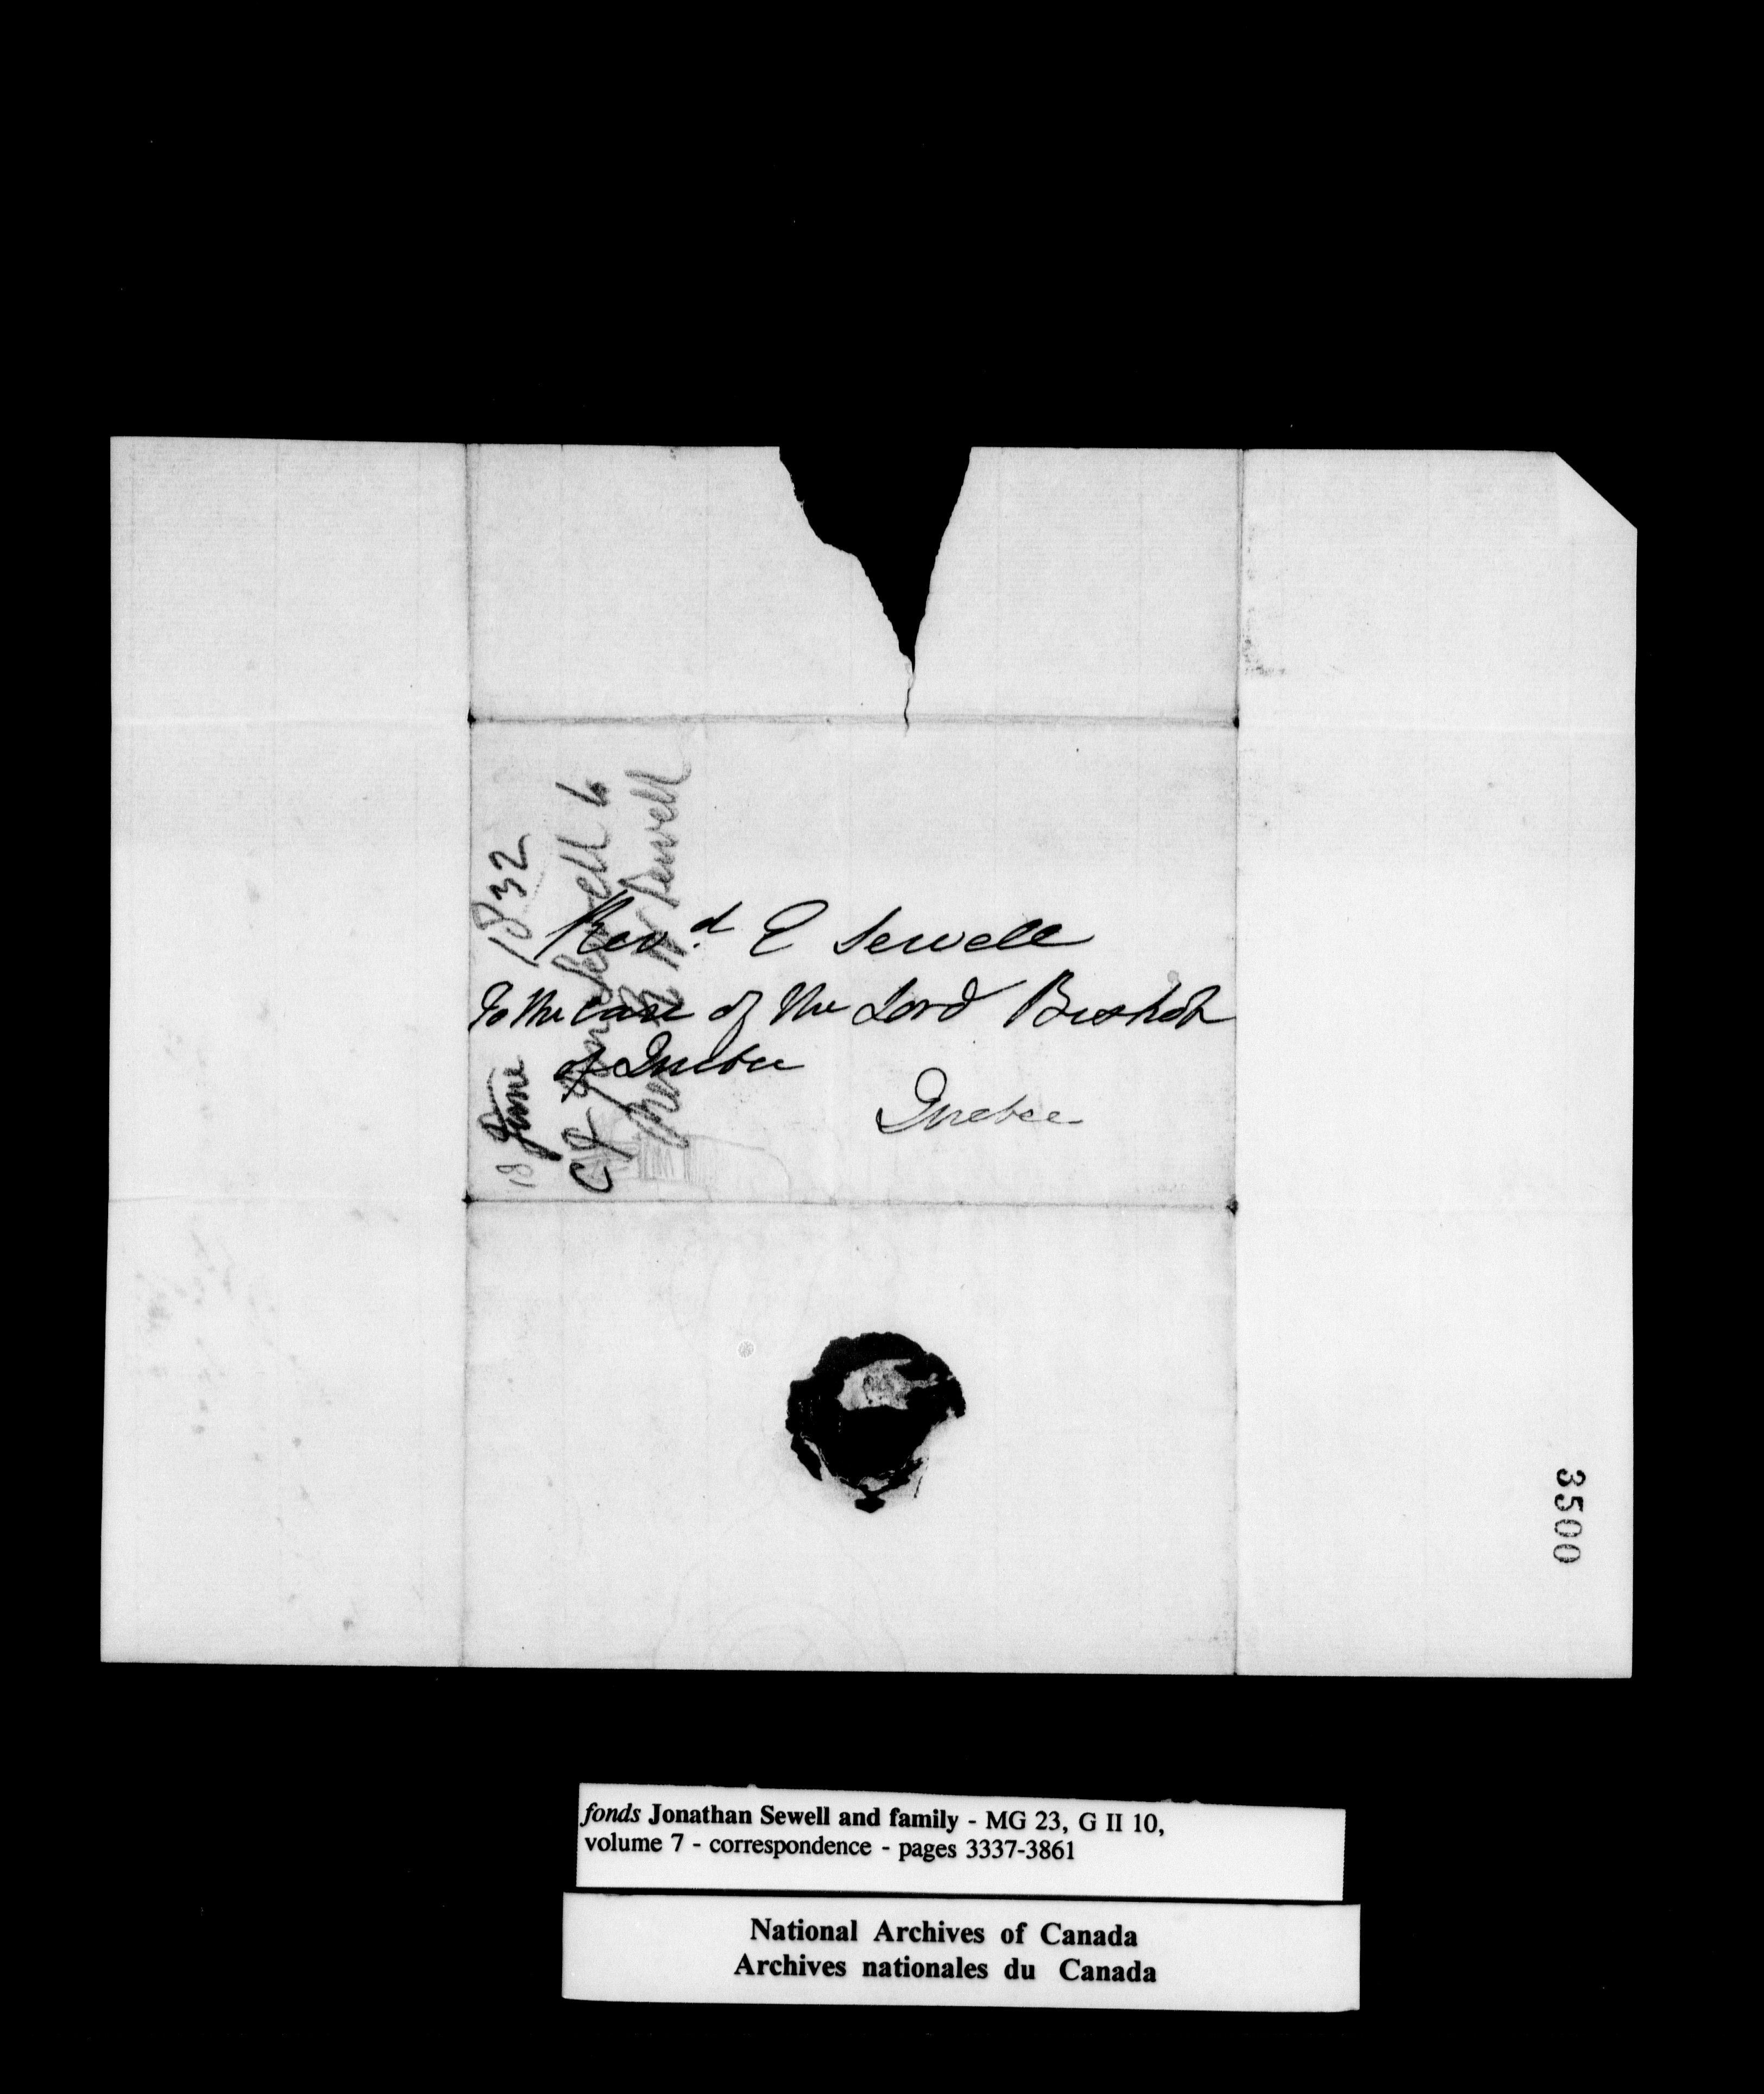 Rev.d E Sewell
To the care of the Lord Bishop
of Quebec
Quebec
18 June 1832
CJ Jon Sewell to
Rev Sewell
3500
fonds Jonathan Sewell and family - MG 23, G II 10,
volume 7 - correspondence - pages 3337-3861
National Archives of Canada
Archives nationales du Canada